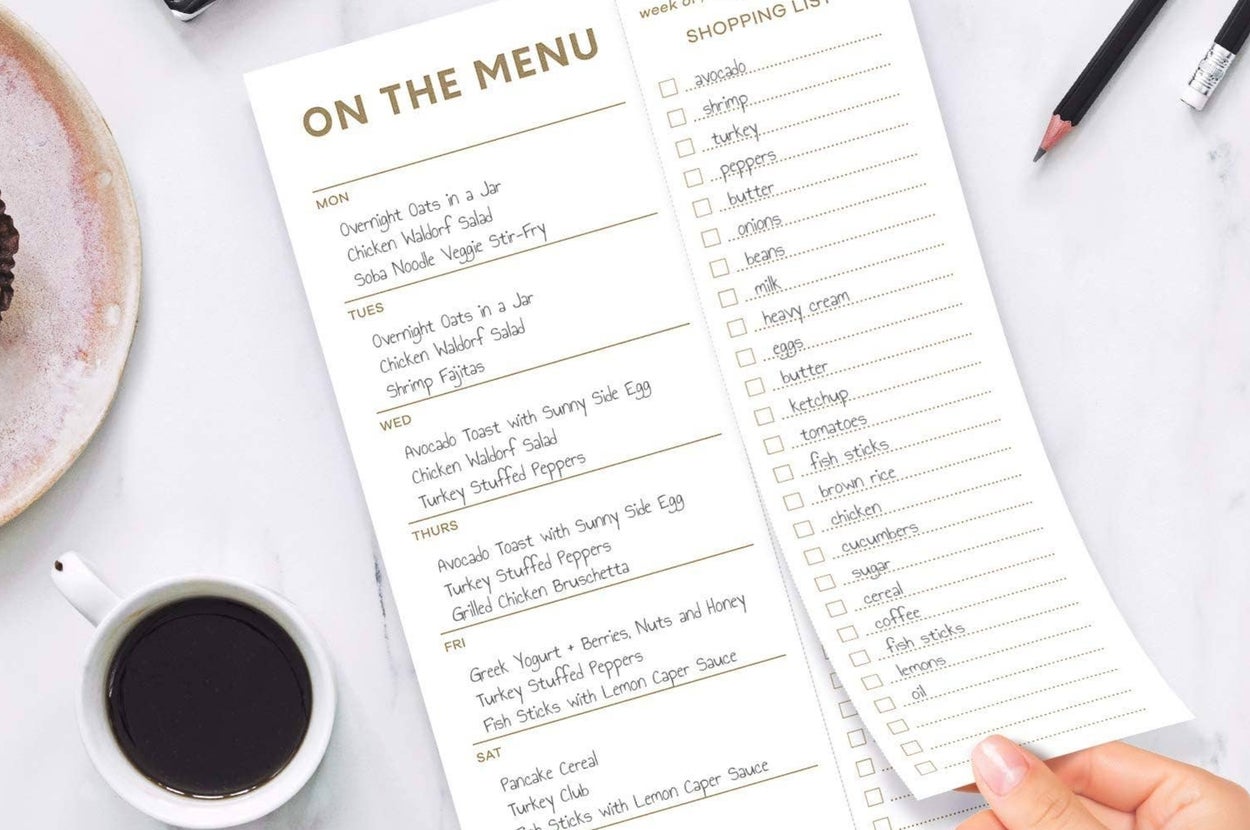 ON THE MENU
MON
Overnight Oats in a Jar
Chicken Waldorf Salad
Soba Noodle Veggie Stir-Fry
TUES
Overnight Oats in a Jar
Chicken Waldorf Salad
Shrimp Fajitas
WED
Avocado Toast with Sunny Side Egg
Chicken Waldorf Salad
Turkey Stuffed Peppers
THURS
Avocado Toast with Sunny Side Egg
Turkey Stuffed Peppers
Grilled Chicken Bruschetta
FRI
Greek Yogurt + Berries, Nuts and Honey
Turkey Stuffed Peppers
Fish Sticks with Lemon Caper Sauce
SAT
Pancake Cereal
Turkey Club
Fish Sticks with Lemon Caper Sauce
week of
SHOPPING LIST
avocado
shrimp
turkey
peppers
butter
onions
beans
milk
heavy cream
eggs
butter
ketchup
tomatoes
fish sticks
brown rice
chicken
cucumbers
sugar
cereal
coffee
fish sticks
lemons
oil